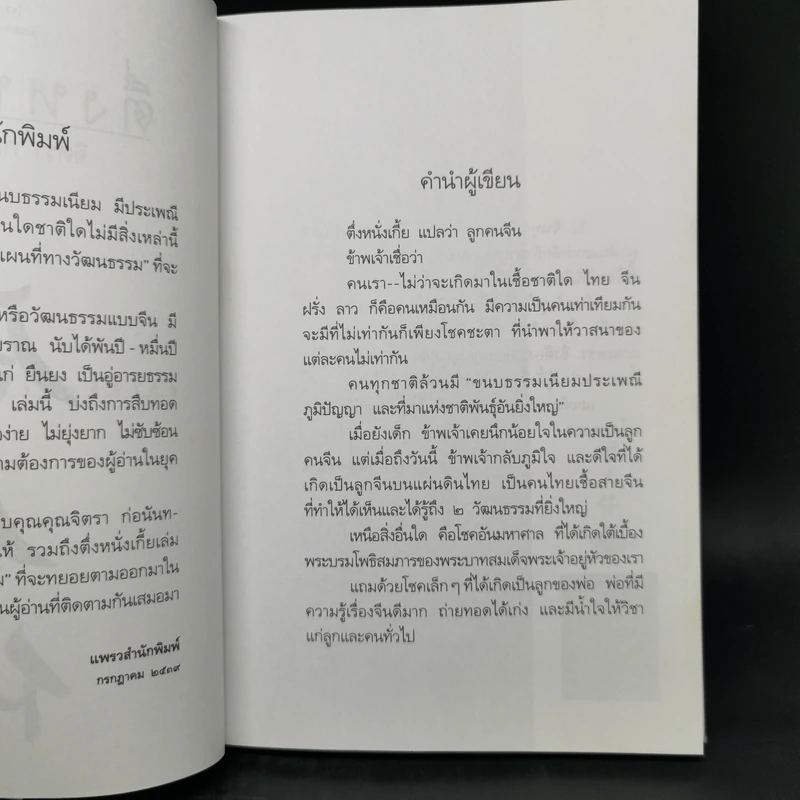 ักพิมพ์
นบธรรมเนียม มีประเพณี
นใดชาติใดไม่มีสิ่งเหล่านี้
แผนที่ทางวัฒนธรรม" ที่จะ
หรือวัฒนธรรมแบบจีน มี
บราณ นับได้พันปี - หมื่นปี
แก่ ยืนยง เป็นอู่อารยธรรม
เล่มนี้ บ่งถึงการสืบทอด
ง่าย ไม่ยุ่งยาก ไม่ซับซ้อน
ามต้องการของผู้อ่านในยุค
บคุณคุณจิตรา ก่อนันท-
ห้ รวมถึงตึ่งหนั่งเกี้ยเล่ม
ม" ที่จะทยอยตามออกมาใน
นผู้อ่านที่ติดตามกันเสมอมา
แพรวสำนักพิมพ์
กรกฎาคม ๒๕๓๙
คำนำผู้เขียน
ตึ่งหนั่งเกี้ย แปลว่า ลูกคนจีน
ข้าพเจ้าเชื่อว่า
คนเรา--ไม่ว่าจะเกิดมาในเชื้อชาติใด ไทย จีน
ฝรั่ง ลาว ก็คือคนเหมือนกัน มีความเป็นคนเท่าเทียมกัน
จะมีที่ไม่เท่ากันก็เพียงโชคชะตา ที่นำพาให้วาสนาของ
แต่ละคนไม่เท่ากัน
คนทุกชาติล้วนมี "ขนบธรรมเนียมประเพณี
ภูมิปัญญา และที่มาแห่งชาติพันธุ์อันยิ่งใหญ่"
เมื่อยังเด็ก ข้าพเจ้าเคยนึกน้อยใจในความเป็นลูก
คนจีน แต่เมื่อถึงวันนี้ ข้าพเจ้ากลับภูมิใจ และดีใจที่ได้
เกิดเป็นลูกจีนบนแผ่นดินไทย เป็นคนไทยเชื้อสายจีน
ที่ทำให้ได้เห็นและได้รู้ถึง ๒ วัฒนธรรมที่ยิ่งใหญ่
เหนือสิ่งอื่นใด คือโชคอันมหาศาล ที่ได้เกิดใต้เบื้อง
พระบรมโพธิสมภารของพระบาทสมเด็จพระเจ้าอยู่หัวของเรา
แถมด้วยโชคเล็กๆ ที่ได้เกิดเป็นลูกของพ่อ พ่อที่มี
ความรู้เรื่องจีนดีมาก ถ่ายทอดได้เก่ง และมีน้ำใจให้วิชา
แก่ลูกและคนทั่วไป